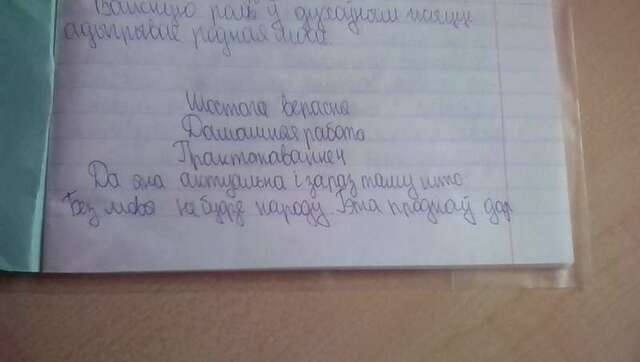 Важную роль ў духоўным
адыгрывае родная мова.
Шостага верасня
Дамашняя работа
Практыкаванне
Да яна актуальна і зараз таму што
без мова на будзе народу. Гэта продкаў дар